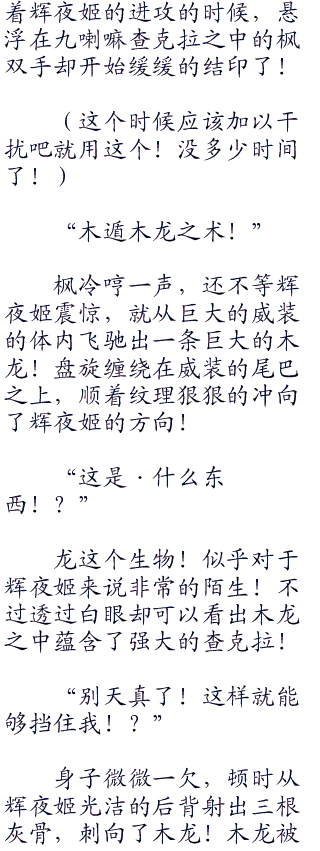 着辉夜姬的进攻的时候，悬
浮在九喇嘛查克拉之中的枫
双手却开始缓缓的结印了！
（这个时候应该加以干
扰吧就用这个！没多少时间
了！）
“木遁木龙之术！”
枫冷哼一声，还不等辉
夜姬震惊，就从巨大的威装
的体内飞驰出一条巨大的木
龙！盘旋缠绕在威装的尾巴
之上，顺着纹理狠狠的冲向
了辉夜姬的方向！
“这是·什么东
西！？”
龙这个生物！似乎对于
辉夜姬来说非常的陌生！不
过透过白眼却可以看出木龙
之中蕴含了强大的查克拉！
“别天真了！这样就能
够挡住我！？”
身子微微一欠，顿时从
辉夜姬光洁的后背射出三根
灰骨，刺向了木龙！木龙被